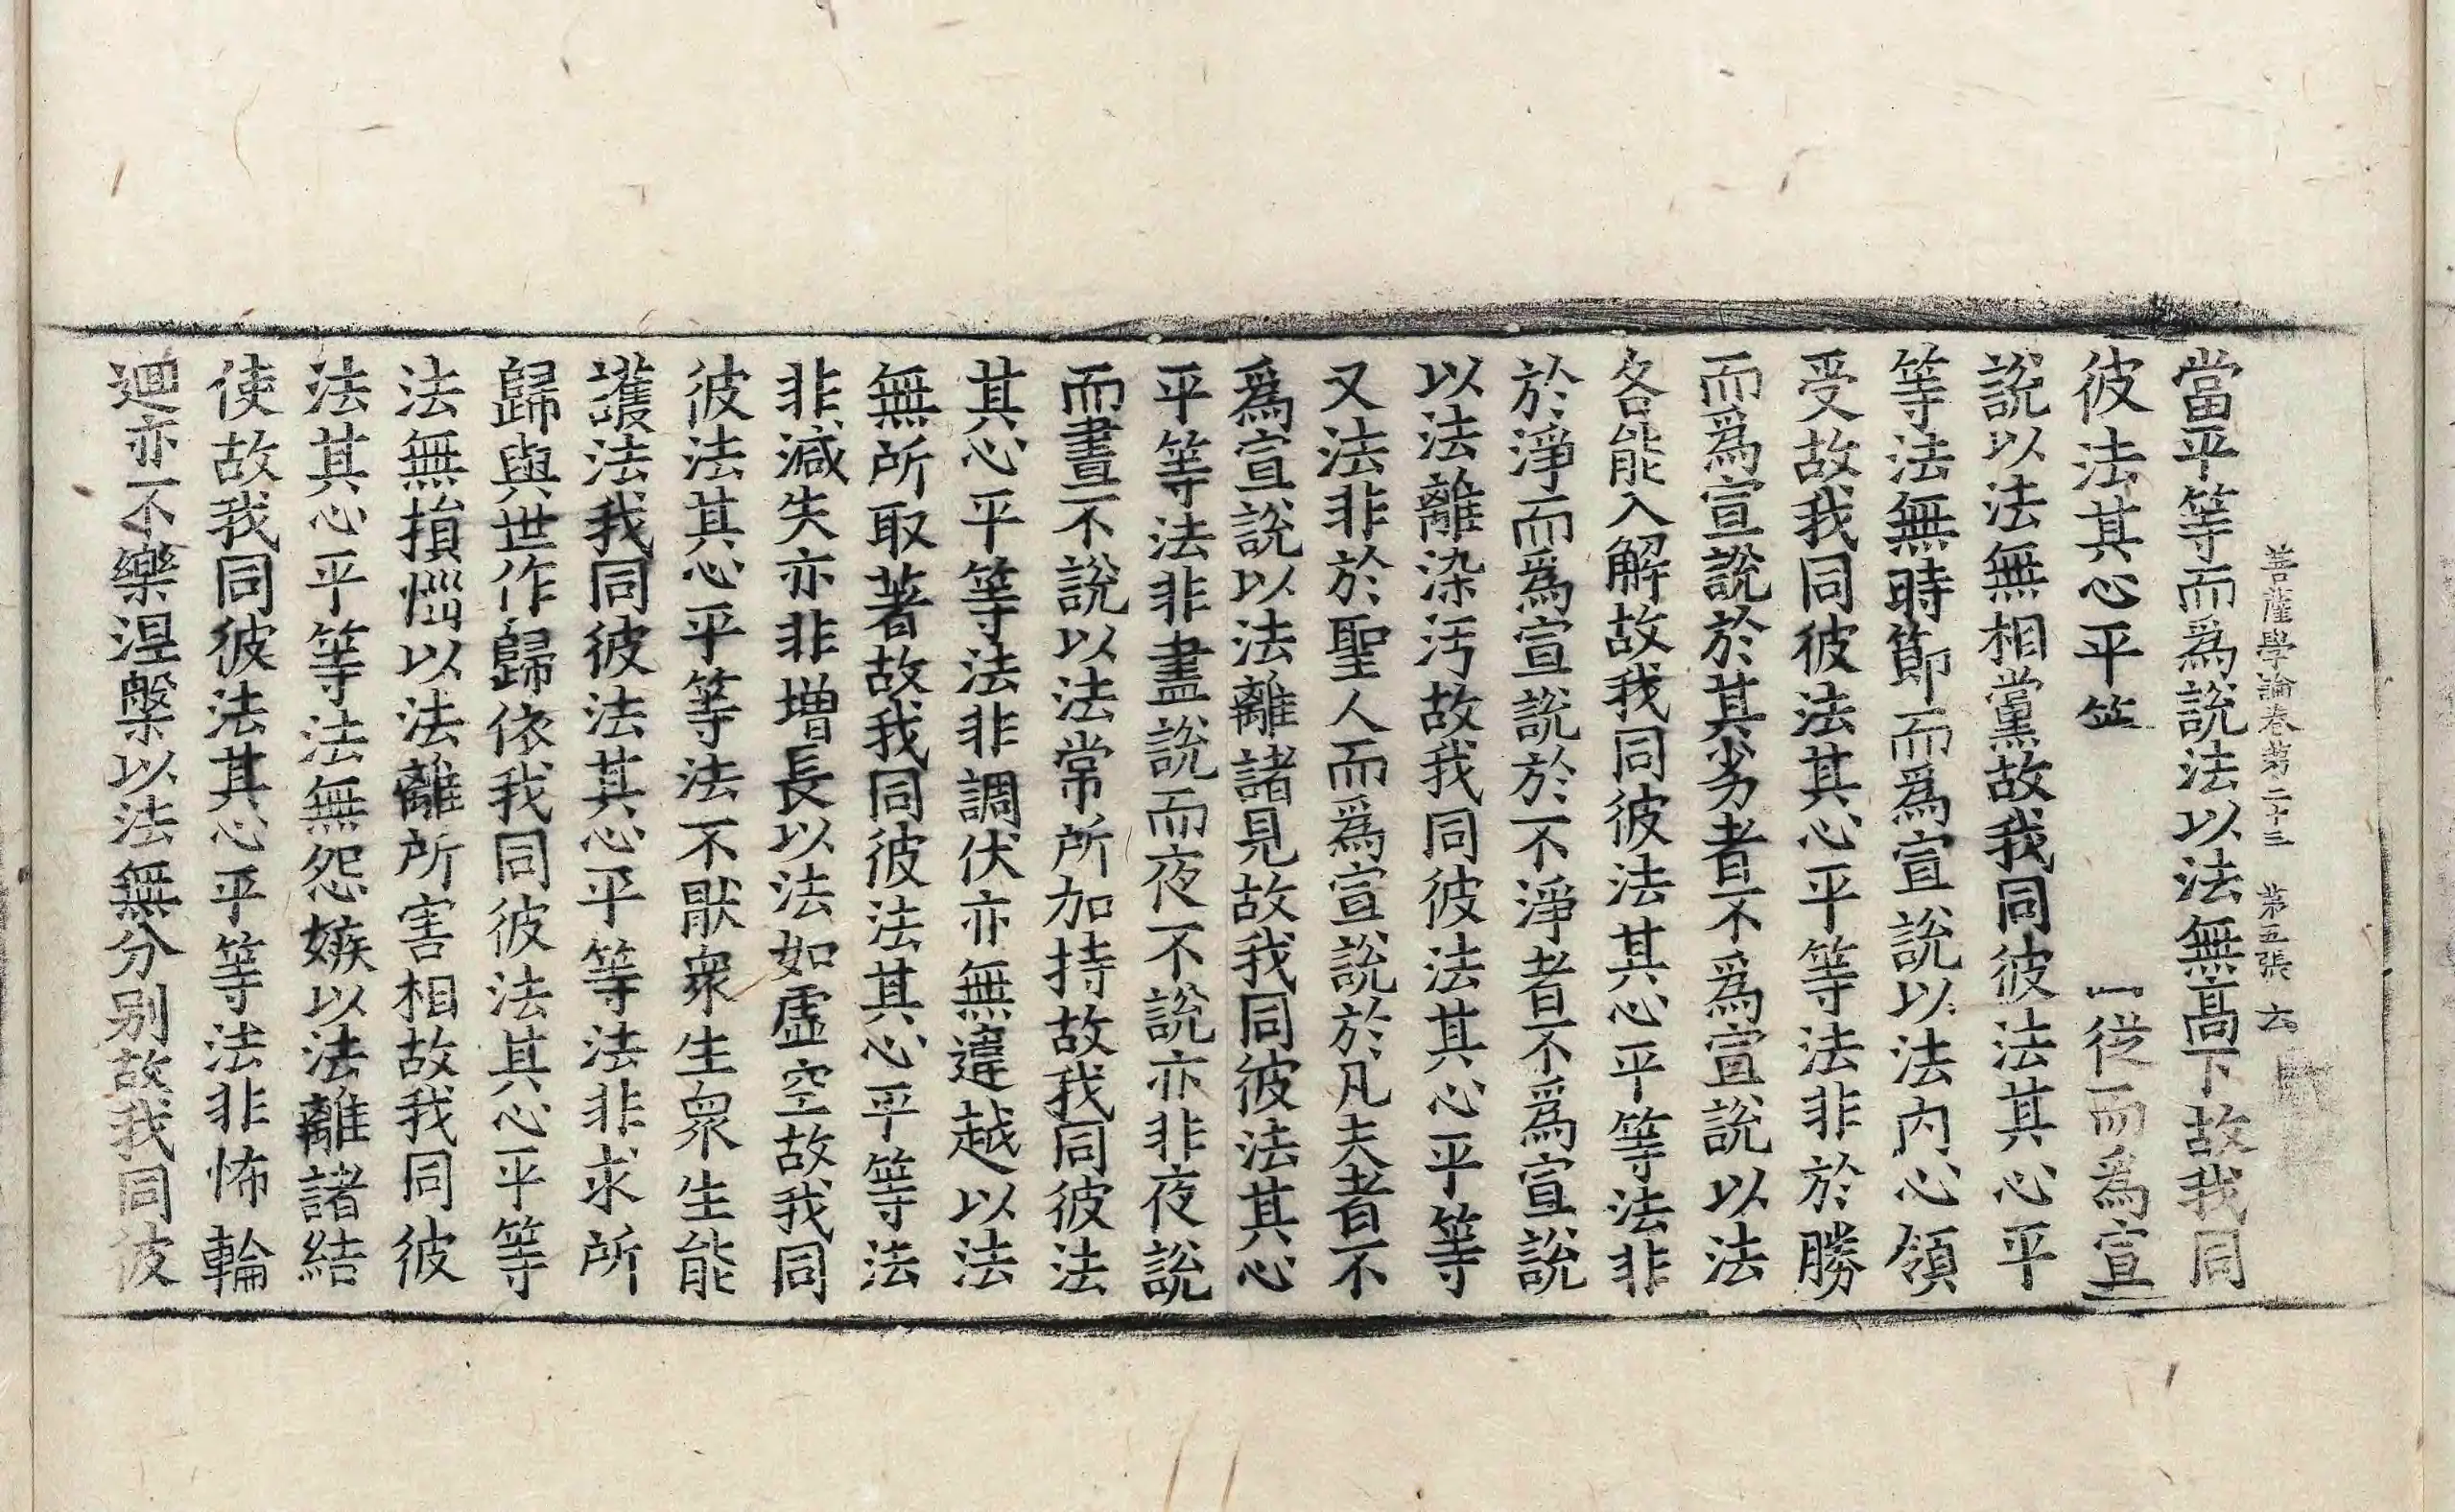 菩薩學論卷第二十三 第五張 六
當平等而爲說法以法無高下故我同
彼法其心平 從而爲宣
說以法無相黨故我同彼法其心平
等法無時節而爲宣說以法内心領
受故我同彼法其心平等法非於勝
而爲宣說於其劣者不爲宣說以法
各能入解故我同彼法其心平等法非
於淨而爲宣說於不淨者不爲宣說
以法離染污故我同彼法其心平等
又法非於聖人而爲宣說於凡夫者不
爲宣說以法離諸見故我同彼法其心
平等法非晝說而夜不說亦非夜說
而晝不說以法常所加持故我同彼法
其心平等法非調伏亦無違越以法
無所取著故我同彼法其心平等法
非減失亦非增長以法如虛空故我同
彼法其心平等法不猒衆生衆生能
護法我同彼法其心平等法非求所
歸與世作歸依我同彼法其心平等
法無損惱以法離所害相故我同彼
法其心平等法無怨嫉以法離諸結
使故我同彼法其心平等法非怖輪
迴亦不樂涅槃以法無分别故我同彼